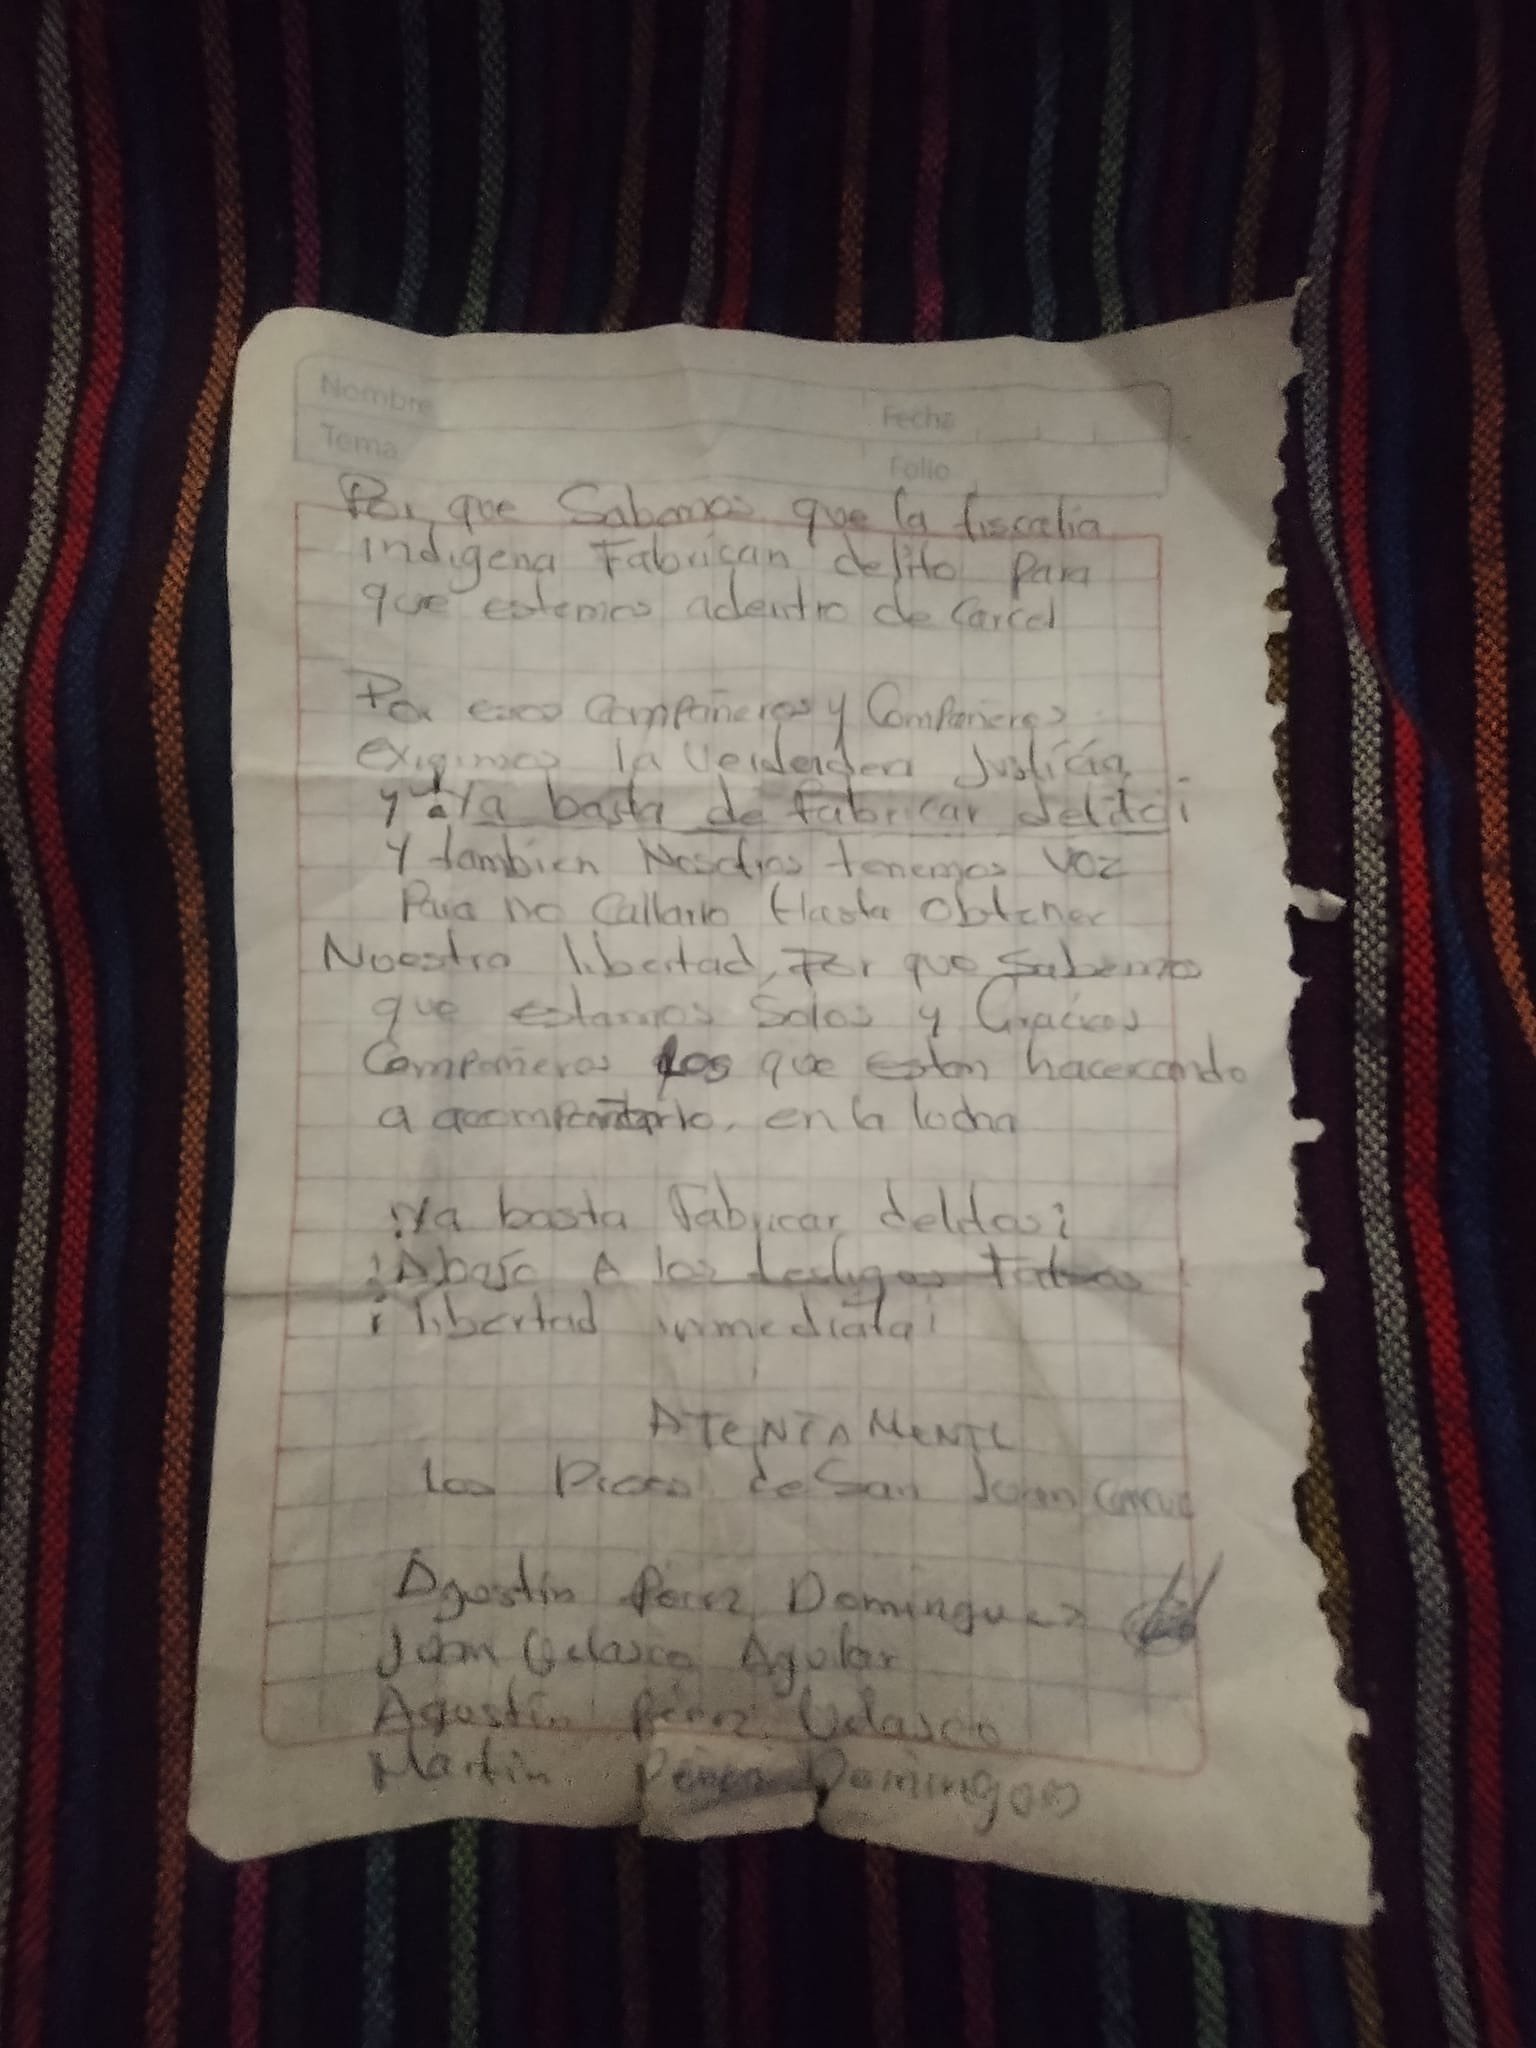 Nombre
Fecha
Tema
Folio
Por que Sabemos que la fiscalia
indigena Fabrican delito para
que estemos adentro de Carcel
Por esos Compañeros y Compañeras
exigimos la Verdadera Justicia,
y ya basta de fabricar delito¡
Y tambien Nosotros tenemos Voz
Para no Callarlo Hasta Obtener
Nuestra libertad, Por que Sabemos
que estamos Solos y Gracias
Compañeros los que estan hacercando
a acompañarlo, en la lucha
¡Ya basta Fabricar delitos¡
¡Abajo A los testigos falsos
¡libertad inmediata¡
ATENTAMENTE
Los Presos de San Juan Cancuc
Agustín Pérez Domingues
Juan Velasco Aguilar
Agustín Pérez Velasco
Martin Pérez Domingos